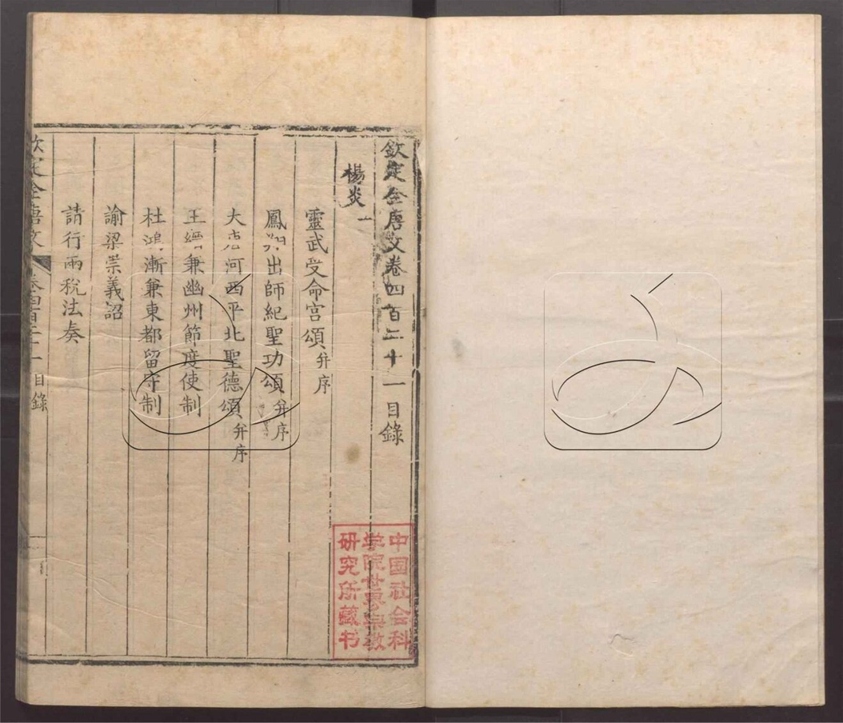 欽定全唐文卷四百二十一目錄
楊炎一
靈武受命宮頌并序
鳳翔出師紀聖功頌并序
大唐河西平北聖德頌并序
王縉兼幽州節度使制
杜鴻漸兼東都留守制
諭梁崇義詔
請行兩稅法奏
欽定全唐文 卷四百二十一目錄
中国社会科
学院世界宗教
研究所藏书